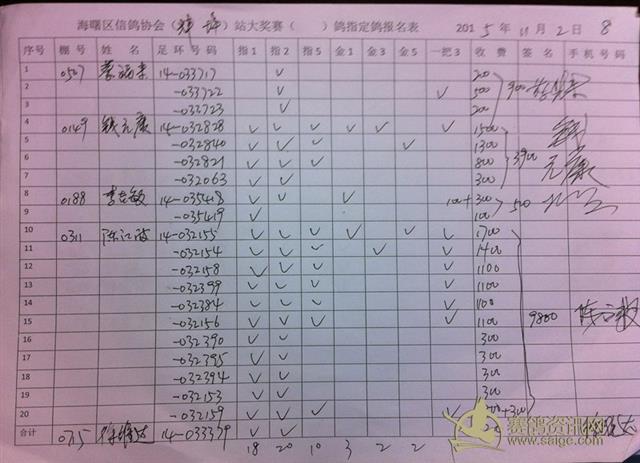 海曙区信鸽协会（ ）站大奖赛（ ）鸽指定鸽报名表 2015年11月2日 8
序号 棚号 姓名 足环号码 指1 指2 指5 金1 金3 金5 一把3 收费 签名 手机号码
1 0507 14-033717 ✓ 200
2 -033722 ✓ ✓ 500 900
3 -033723 ✓ 200
4 0149 钱元康 14-032828 ✓ ✓ ✓ ✓ ✓ ✓ 1500
5 -032840 ✓ ✓ ✓ ✓ 1300
6 -032821 ✓ ✓ ✓ 800 3900
7 -032063 ✓ ✓ 300 元康
8 0188 14-035418 ✓ ✓ ✓ 100+300 500
9 -035419 ✓ 100
10 0311 陈江波 14-032155 ✓ ✓ ✓ ✓ ✓ ✓ 1700
11 -032154 ✓ ✓ ✓ ✓ ✓ 1400
12 -032158 ✓ ✓ ✓ ✓ 1100
13 -032399 ✓ ✓ ✓ ✓ 1100
14 -032384 ✓ ✓ ✓ ✓ 1100
15 -032156 ✓ ✓ ✓ ✓ 1100 9800
16 -032390 ✓ ✓ 300
17 -032395 ✓ ✓ 300
18 -032394 ✓ ✓ 300
19 -032153 ✓ ✓ 300
20 -032159 ✓ ✓ ✓ ✓ +300
合计 0715 14-033339 ✓ ✓
18 20 10 3 2 2
赛鸽资讯网
www.saige.com